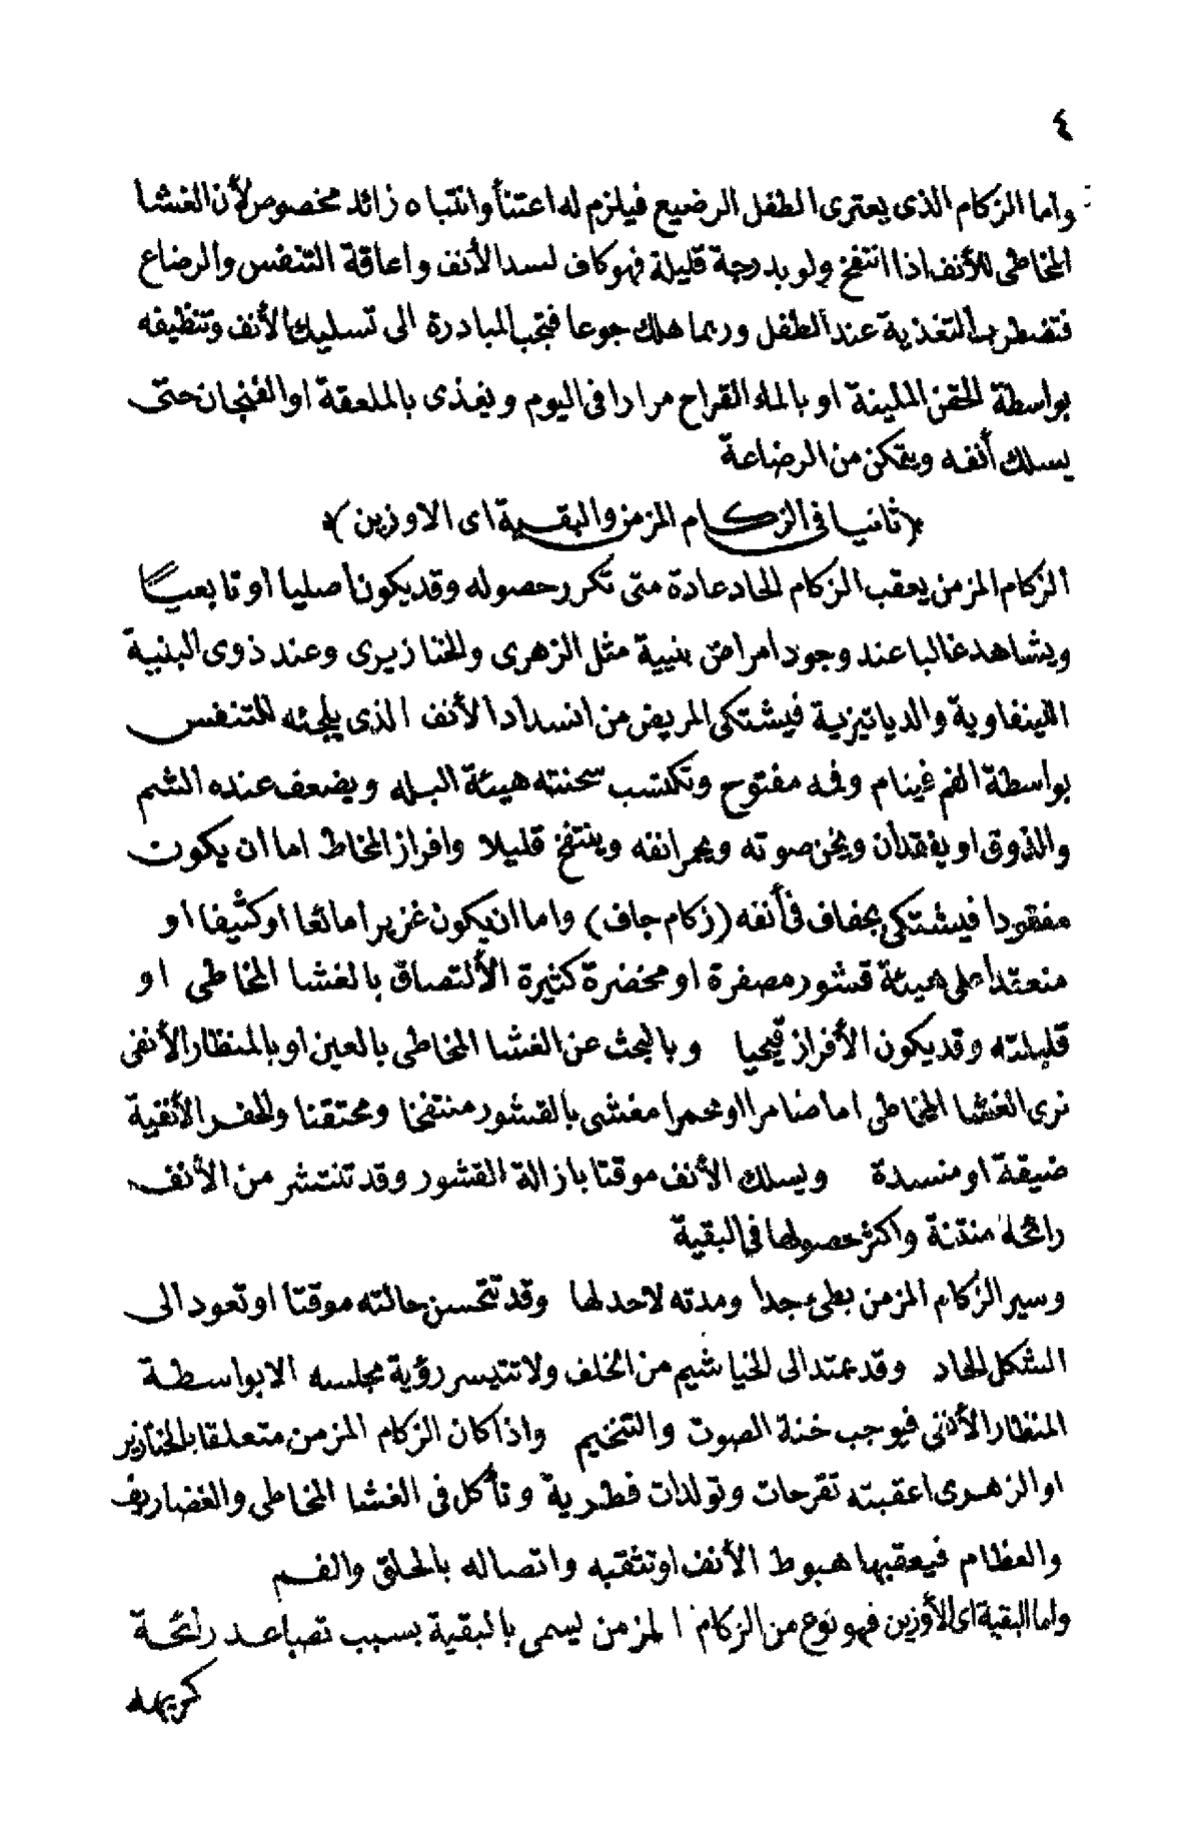 ٤
واما الزكام الذى يعترى الطفل الرضيع فيلزم له اعتنأ وانتباه زائد مخصوص لأن الغشا
المخاطى للأنف اذا انتفخ ولو بدرجة قليلة فهو كاف لسد الأنف واعاقة التنفس والرضاع
فتضطرب التغذية عند الطفل وربما هلك جوعا فتجب المبادرة الى تسليك الأنف وتنظيفه
بواسطة الحقن الملينة او بالماء القراح مرارا فى اليوم ويغذى بالملعقة او الفنجان حتى
يسلك أنفه ويتمكن من الرضاعة
﴿ثانيا فى الزكام المزمن والبقية اى الاوزين﴾
الزكام المزمن يعقب الزكام الحاد عادة متى تكرر حصوله وقد يكون اصليا او تابعيا
ويشاهد غالبا عند وجود امراض بنيية مثل الزهرى والخنازيرى وعند ذوى البنية
اللينفاوية والدياتيزية فيشتكى المريض من انسداد الأنف الذى يلجئه للتنفس
بواسطة الفم فينام وفمه مفتوح وتكتسب سحنته هيئة البله ويضعف عنده الشم
والذوق او يفقدان ويخن صوته ويحمر انفه وينتفخ قليلا وافراز المخاط اما ان يكون
مفقودا فيشتكى بجفاف فى أنفه (زكام جاف) واما ان يكون غزيرا مائعا او كثيفا او
منعقدا على هيئة قشور مصفرة او مخضرة كثيرة الألتصاق بالغشا المخاطى او
قليلته وقد يكون الأفراز قيحيا وبالبحث عن الغشا المخاطى بالعين او بالمنظار الأنفى
نرى الغشا المخاطى اما ضامرا او محمرا مغشى بالقشور منتفخا ومحتقنا والحفر الأنفية
ضيقة او منسدة ويسلك الأنف موقتا بازالة القشور وقد تنتشر من الأنف
رائحة منتنة واكثر حصولها فى البقية
وسير الزكام المزمن بطئ جدا ومدته لاحد لها وقد تتحسن حالته موقتا او تعود الى
الشكل الحاد وقد يمتد الى الخياشيم من الخلف ولا تتيسر رؤية مجلسه الا بواسطة
المنظار الأنفى فيوجب خنة الصوت والتنخيم واذا كان الزكام المزمن متعلقا بالخنازير
او الزهرى اعقبته تقرحات وتولدات فطرية وتأكل فى الغشا المخاطى والغضاريف
والعظام فيعقبها هبوط الأنف او تثقبه واتصاله بالحلق والفم
واما البقية اى الأوزين فهو نوع من الزكام المزمن يسمى بالبقية بسبب تصاعد رائحة
كريهه